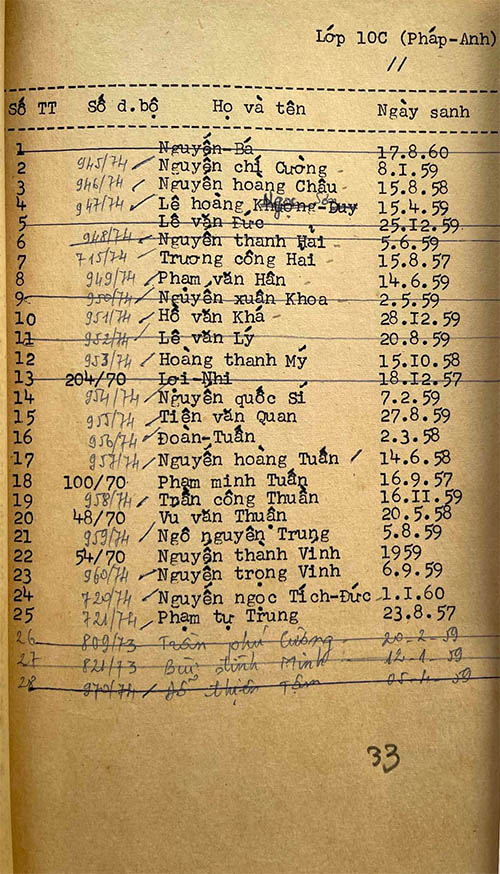 Lớp 10C (Pháp-Anh)
//
Số TT Số d.bộ Họ và tên Ngày sanh
1 Nguyễn-Bá 17.8.60
2 945/74 Nguyễn chí Cường 8.I.59
3 946/74 Nguyễn hoàng Châu 15.8.58
4 947/74 Lê hoàng Khương-Duy 15.4.59
5 Lê văn Đức 25.I2.59
6 948/74 Nguyễn thanh Hải 5.6.59
7 715/74 Trương công Hải 15.8.57
8 949/74 Phạm văn Hân 14.6.59
9 950/74 Nguyễn xuân Khoa 2.5.59
10 951/74 Hồ văn Khá 28.I2.59
11 952/74 Lê văn Lý 20.8.59
12 953/74 Hoàng thanh Mý 15.I0.58
13 204/70 Lợi-Nhi 18.I2.57
14 954/74 Nguyễn quốc Sĩ 7.2.59
15 955/74 Tiện văn Quan 27.8.59
16 956/74 Đoàn-Tuấn 2.3.58
17 957/74 Nguyễn hoàng Tuấn 14.6.58
18 100/70 Phạm minh Tuấn 16.9.57
19 958/74 Trần công Thuần 16.II.59
20 48/70 Vu văn Thuần 20.5.58
21 959/74 Ngô nguyên Trung 5.8.59
22 54/70 Nguyễn thanh Vinh 1959
23 960/74 Nguyễn trọng Vinh 6.9.59
24 720/74 Nguyễn ngọc Tích-Đức 1.I.60
25 721/74 Phạm tự Trung 23.8.57
26 809/73 Trần phú Cường 20-2-59
27 821/73 Bùi đình Minh 12-1-59
28 970/74 Đỗ thiện Tâm 05-4-59
33